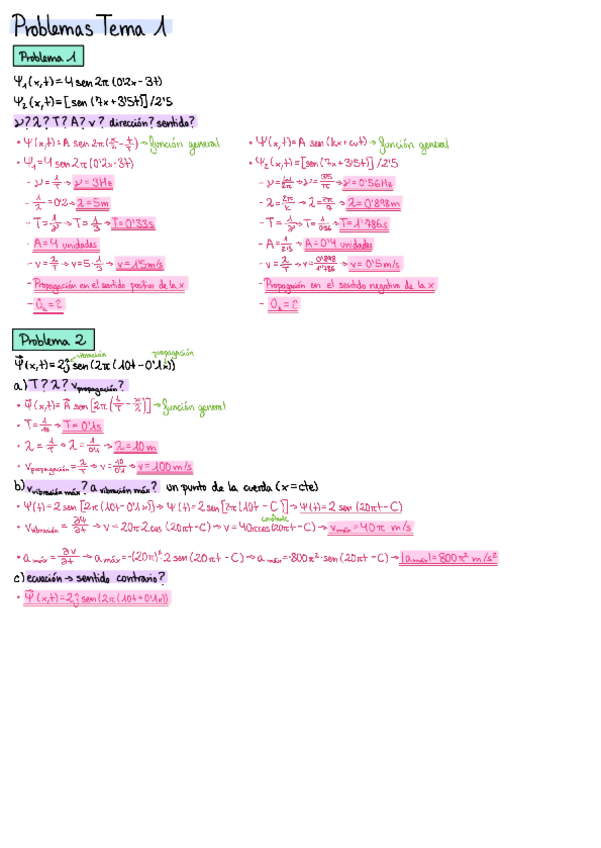 Problemas Tema 1
Problema 1
Ψ₁(x,t) = 4 sen 2π (0'2x - 3t)
Ψ₂(x,t) = [sen (7x + 3'5t)] / 2'5
ν? λ? T? A? v? dirección? sentido?
• Ψ(x,t) = A sen 2π (x/λ - t/T) → función general
• Ψ₁ = 4 sen 2π (0'2x - 3t)
- ν = 1/T → ν = 3Hz
- 1/λ = 0'2 → λ = 5m
- T = 1/ν → T = 1/3 → T = 0'33s
- A = 4 unidades
- v = λ/T → v = 5 · 1/3 → v = 15m/s
- Propagación en el sentido positivo de la x
• Ψ(x,t) = A sen (kx + ωt) → función general
• Ψ₂(x,t) = [sen (7x + 3'5t)] / 2'5
- ν = ω/2π → ν = 3'5/2π → ν = 0'56Hz
- λ = 2π/k → λ = 2π/7 → λ = 0'898m
- T = 1/ν → T = 1/0'56 → T = 1'786s
- A = 1/2'5 → A = 0'4 unidades
- v = λ/T → v = 0'898/1'786 → v = 0'5m/s
- Propagación en el sentido negativo de la x
Problema 2
vibración propagación
Ψ⃗(x,t) = 2j⃗ sen (2π (10t - 0'1x))
a) T? λ? v propagación?
• Ψ⃗(x,t) = A⃗ sen [2π (t/T - x/λ)] → función general
• T = 1/10 → T = 0'1s
• λ = 1/0'1 → λ = 10m
• v propagación = λ/T → v = 10/0'1 → v = 100m/s
b) v vibración máx? a vibración máx? un punto de la cuerda (x = cte)
• Ψ(t) = 2 sen [2π (10t - 0'1x)] → Ψ(t) = 2 sen [2π (10t - C)] → Ψ(t) = 2 sen (20πt - C)
constante
• v vibración = ∂Ψ/∂t → v = 20π 2 cos (20πt - C) → v = 40π cos (20πt - C) → v máx = 40π m/s
• a máx = ∂v/∂t → a máx = -(20π)² · 2 sen (20πt - C) → a máx = -800π² · sen (20πt - C) → |a máx| = 800π² m/s²
c) ecuación → sentido contrario?
• Ψ⃗(x,t) = 2j⃗ sen (2π (10t + 0'1x))